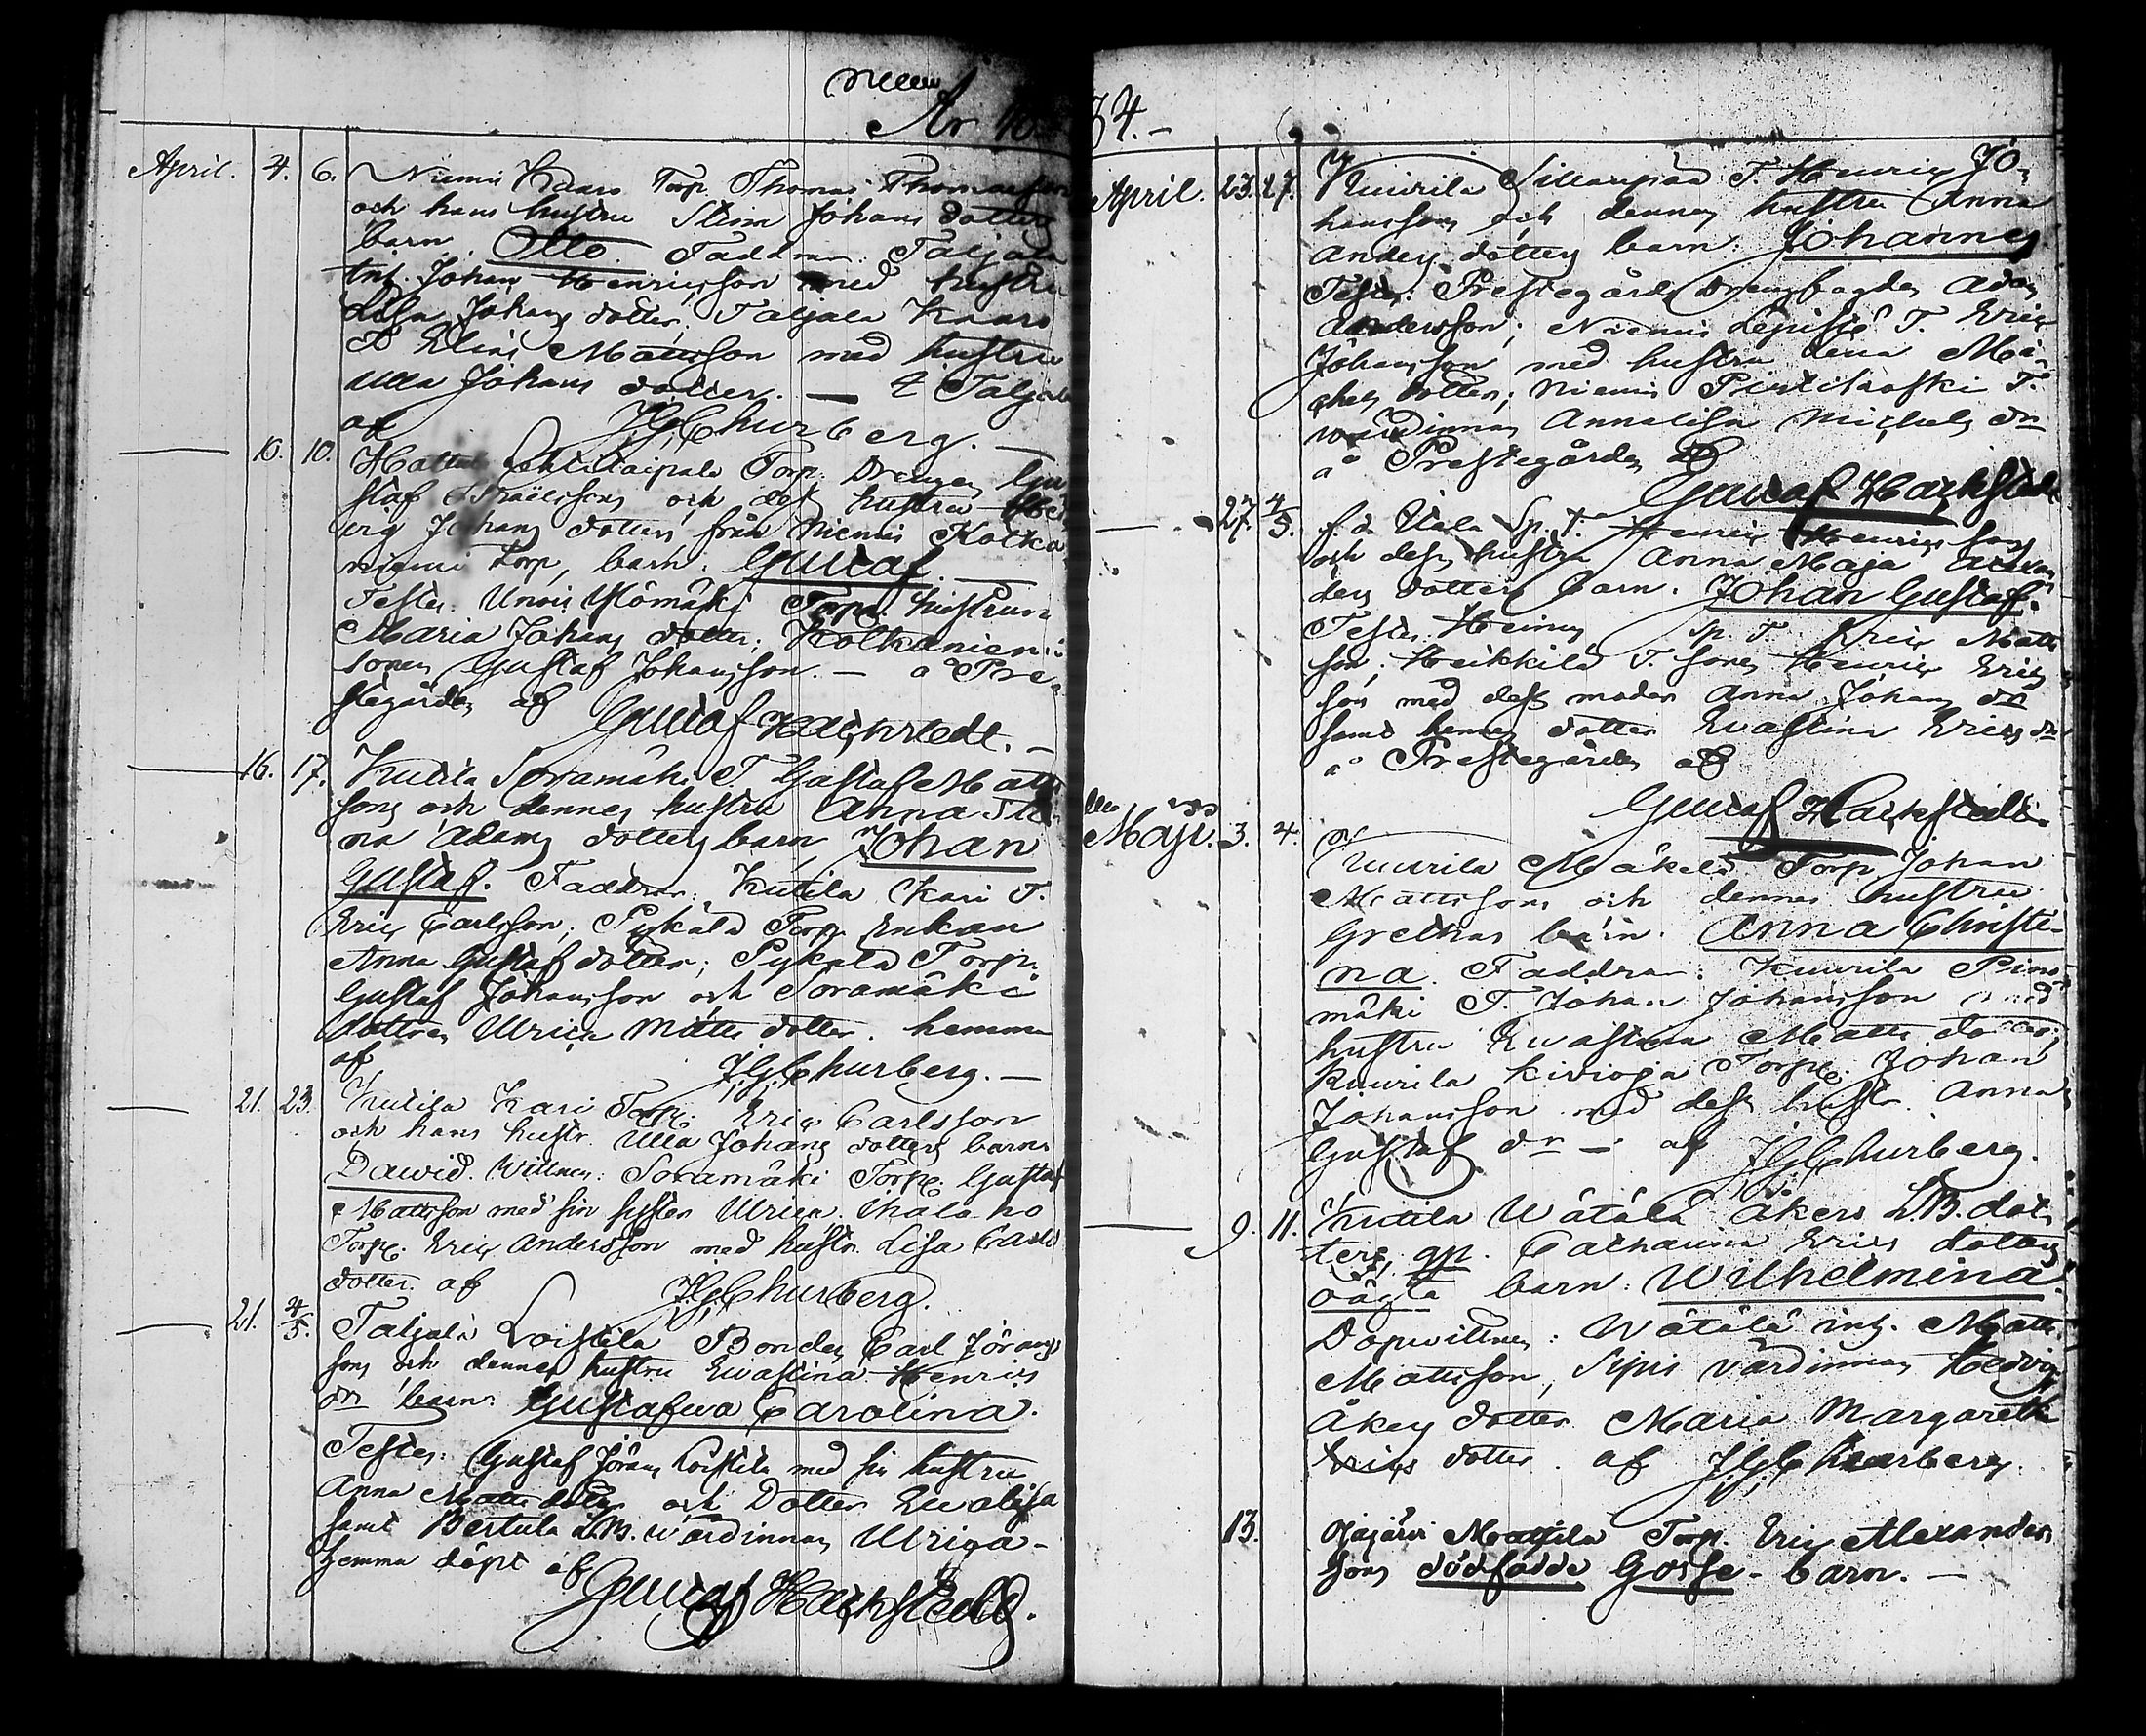 År 18
April. 4. 6. Niemis Kaaro Torp. Thomas Thomasson
och hans hustru Stina Johans dotters
barn Otto. Faddrar: Taljala
Johan Henricsson med hustru
Lisa Johans dotter; Taljala Kaaro
T. Elias Mattsson med hustru
Ulla Johans dotter. — i Taljala
af J.G. Churberg. —
— 10. 10. Torp. Drengen Gu
staf Israelsons och dess hustru Hed
vig Johans dotters från Niemis Kotka
niemi torp, barn: Gustaf. —
Testes: Torpe. hustrun
Maria Johans dotter; Kotkaniemi
sonen Gustaf Johansson. — å Pre
stegården af
Gustaf Hackstedt. —
— 16. 17. Kutila Soramäki T. Gustaf Matts
sons och dennes hustru Anna Sti
na Adams dotters barn, Johan
Gustaf. Faddrar: Kutila Kari T.
Eric Carlsson; Pykälä Torp Enkan
Anna Gustaf dotter; Pykälä Torp.
Gustaf Johansson och Soramäki
dottren Ulrica Matts dotter. hemma
af J.G. Churberg. —
— 21. 23. Kutila Kari Torp. Eric Carlsson
och hans hustr. Ulla Johans dotters barn
Dawid. Wittnen: Soramäki Torp. Gustaf
Mattsson med sin syster Ulrica. aho
Torp. Eric Andersson med hustr. Lisa Carls
dotter. af J.G. Churberg.
— 21. 4/5. Taljala Loistila Bonden Carl Jörans
sons och dennes hustru Ewastina Henrics
dn barn: Gustafwa Carolina.
Testes: Gustaf Jörans Loistila med sin hustru
Anna Matts dotter och Dotter Ewalisa
samt Bertula LB. wärdinnan Ulrica —
hemma döpt af
Gustaf Hackstedt.
34. —
April. 23. 27. Kuurila Sillanpää T. Henric Jo
hanssons och dennes hustru Anna
Anders dotters barn: Johannes
Testes: Prestegårds Drengfogden Adam
Andersson; Niemis T. Eric
Johansson med hustru Lena Mi
chels dotter; Niemis T.
wärdinnan Annalisa Michels dn
å Prestegården af
Gustaf Hackstedt
— 27. 4/5. f.d. Uala Sp. T. Henric Henrics sons
och dess hustru Anna Maja Alexan
ders dotters barn: Johan Gustaf.
Testes: Sp. T. Eric Matts
son; Heikkilä T. sonen Henric Erics
son med dess moder Anna Johans dn
samt hennes dotter Ewastina Erics dn
å Prestegården af
Gustaf Hackstedt.
Maji. 3. 4. Kuurila Mäkelä Torp. Johan
Mattssons och dennes hustru
Grethas barn: Anna Christi-
na. Faddrar: Kuurila
mäki T. Johan Johansson med
hustru Ewastina Matts dotter;
Kuurila Kivioja Torpe. Johan
Johansson med dess hustr. Anna
Gustaf dn — af J.G. Churberg.
— 9. 11. Kutila Wätälä åkers LB. dot
ters, Catharina Erics dotters
oägta barn: Wilhelmina.
Dopwittnen: Wätälä inh. Matts
Mattsson, Sipis värdinnan Hedvig
Åkes dotter Maria Margareth
Erics dotter. af J.G. Churberg.
13. Ojajärvi Mattila Torp. Eric Alexanders
sons dödfödde Gosse-barn. —